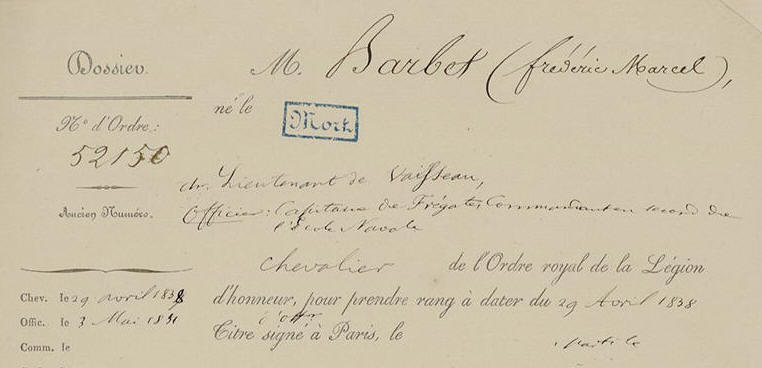 Dossier.
M. Barbet (frédéric Marcel),
né le
Mort
N° d'Ordre:
52150
ch. Lieutenant de Vaisseau,
Officier: Capitaine de Frégate, Commandant en second de
l'école Navale
Ancien Numéro.
chevalier de l'Ordre royal de la Légion
d'honneur, pour prendre rang à dater du 29 Avril 1838
Titre signé à Paris, le
Chev. le 29 avril 1838
Offic. le 3 Mai 18
Comm. le